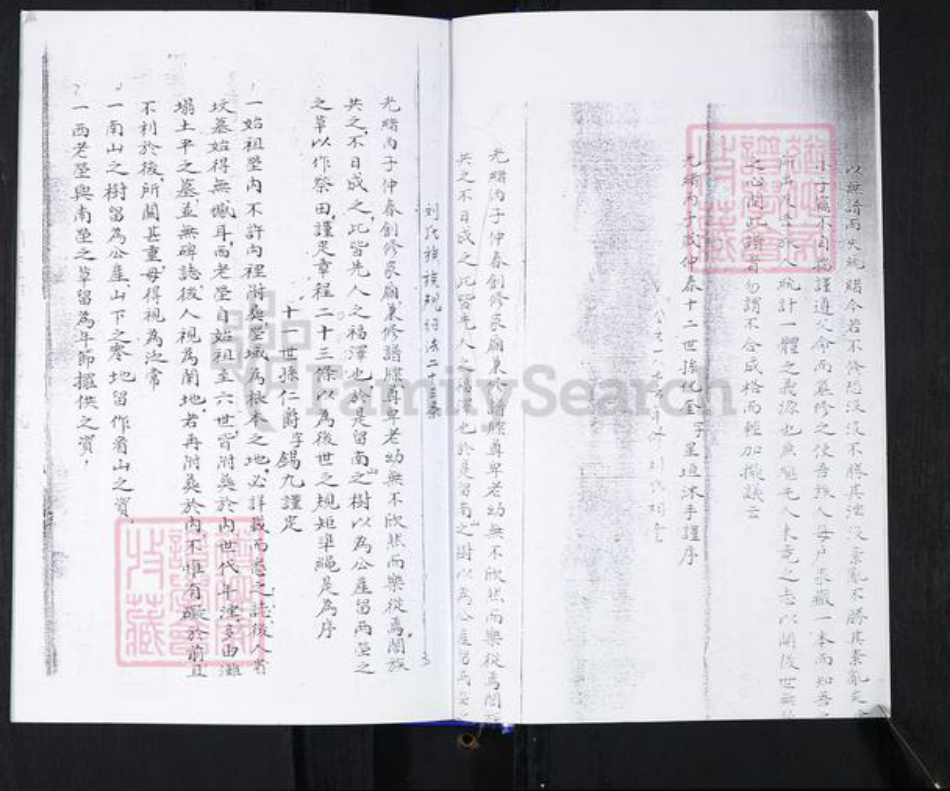 以無譜而失統緒今若不修恐沒沒不勝其湮沒紊亂不勝其紊亂矣
小子 不自揣謹遵父命而纂修之使吾族人每戶家藏一本而知吾
統計一體之義源也庶慰先人未竟之志以開後世無
之心閱此譜者勿謂不合成格而輕加擬議云
光緒丙子歲仲春十二世孫 金字星垣沐手謹序
光緒丙子仲春創修家廟東修譜牒尊卑老幼無不欣然而樂從焉闔族
共之不日成之此皆先人之福澤也於是留南山之樹以為公產留西塋之
刘氏族譜規約法二十三条
光緒丙子仲春創修家廟東修譜牒尊卑老幼無不欣然而樂從焉闔族
共之不日成之此皆先人之福澤也於是留南山之樹以為公產留西塋之
之草以作祭田謹定章程二十三條以為後世之規矩準繩是為序
十一世孫仁爵字錫九謹定
一始祖塋內不許內裡附葬塋域為根本之地必詳載而悉之誌後人省
坟墓始得無憾耳西老塋自始祖至六世皆附葬於內世代年湮多由灘
塌土平之墓並無碑誌後人視為閒地者再附葬於內不惟有礙於前且
不利於後所關甚重毋得視為泛常
一南山之樹留為公產山下之寒地留作看山之資
一西老塋與南塋之草留為年節擺供之資
3
FamilySearch